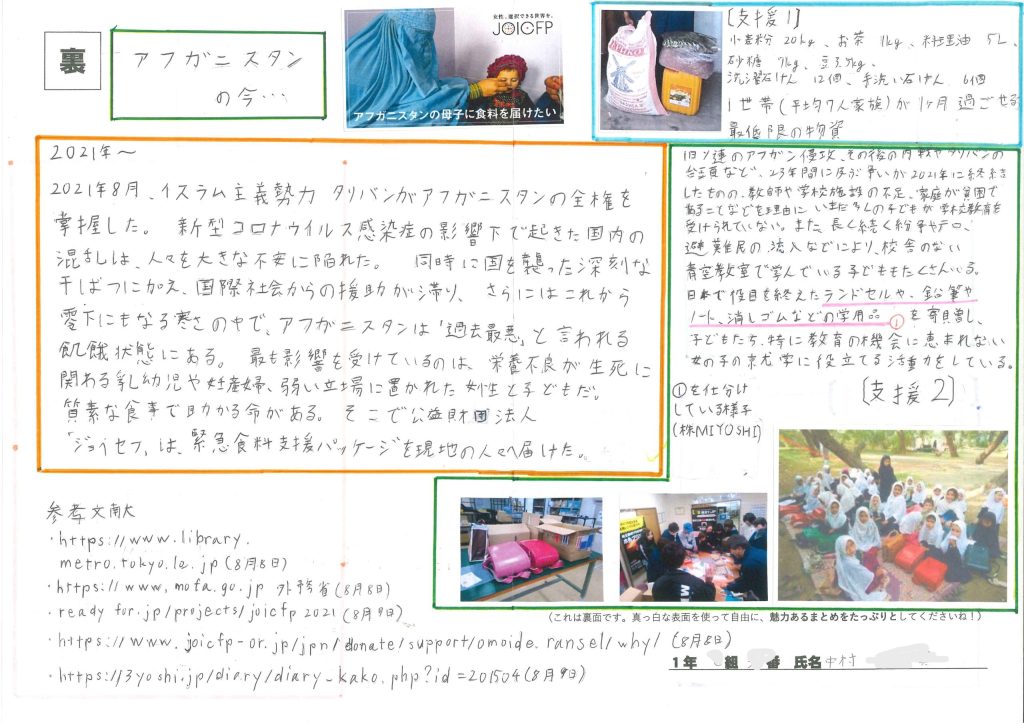 裏
アフガニスタン
の今…
女性が選択できる世界を。
JOICFP
アフガニスタンの母子に食料を届けたい
[支援1]
小麦粉 20kg、お茶 1kg、料理油 5L、
砂糖 7kg、豆3.5kg、
洗濯石けん 12個、手洗い石けん 6個
1世帯(平均7人家族)が1ヶ月過ごせる
最低限の物資
2021年〜
2021年8月、イスラム主義勢力 タリバンがアフガニスタンの全権を
掌握した。 新型コロナウイルス感染症の影響下で起きた国内の
混乱は、人々を大きな不安に陥れた。 同時に国を襲った深刻な
干ばつに加え、国際社会からの援助が滞り、さらにはこれから
零下にもなる寒さの中で、アフガニスタンは「過去最悪」と言われる
飢餓状態にある。 最も影響を受けているのは、栄養不良が生死に
関わる乳幼児や妊産婦、弱い立場に置かれた女性と子どもだ。
質素な食事で助かる命がある。そこで公益財団法人
「ジョイセフ」は、緊急食料支援パッケージを現地の人々へ届けた。
旧ソ連のアフガン侵攻、その後の内戦やタリバンの
台頭など、23年間に及ぶ争いが2021年に終結
したものの、教師や学校施設の不足、家庭が貧困で
あることなどを理由に いまだ多くの子どもが学校教育を
受けられていない。また、長く続く紛争やテロ、
避難民の流入などにより、校舎のない
青空教室で学んでいる子どももたくさんいる。
日本で役目を終えたランドセルや、鉛筆や
ノート、消しゴムなどの学用品①を寄贈し、
子どもたち、特に教育の機会に恵まれない
女の子の就学に役立てる活動をしている。
[支援2]
①を仕分け
している様子
(株MIYOSHI)
参考文献
・https://www.library.
metro.tokyo.lg.jp(8月8日)
・https://www.mofa.go.jp 外務省(8月8日)
・ready for.jp/projects/joicfp2021(8月9日)
・https://www.joicfp-or.jp/jpn/donate/support/omoide_ransel/why/ (8月8日)
・https://3yoshi.jp/diary/diary_kako.php?id=201504(8月9日)
(これは裏面です。真っ白な表面を使って自由に、魅力あるまとめをたっぷりとしてくださいね!)
1年 組 番 氏名 中村